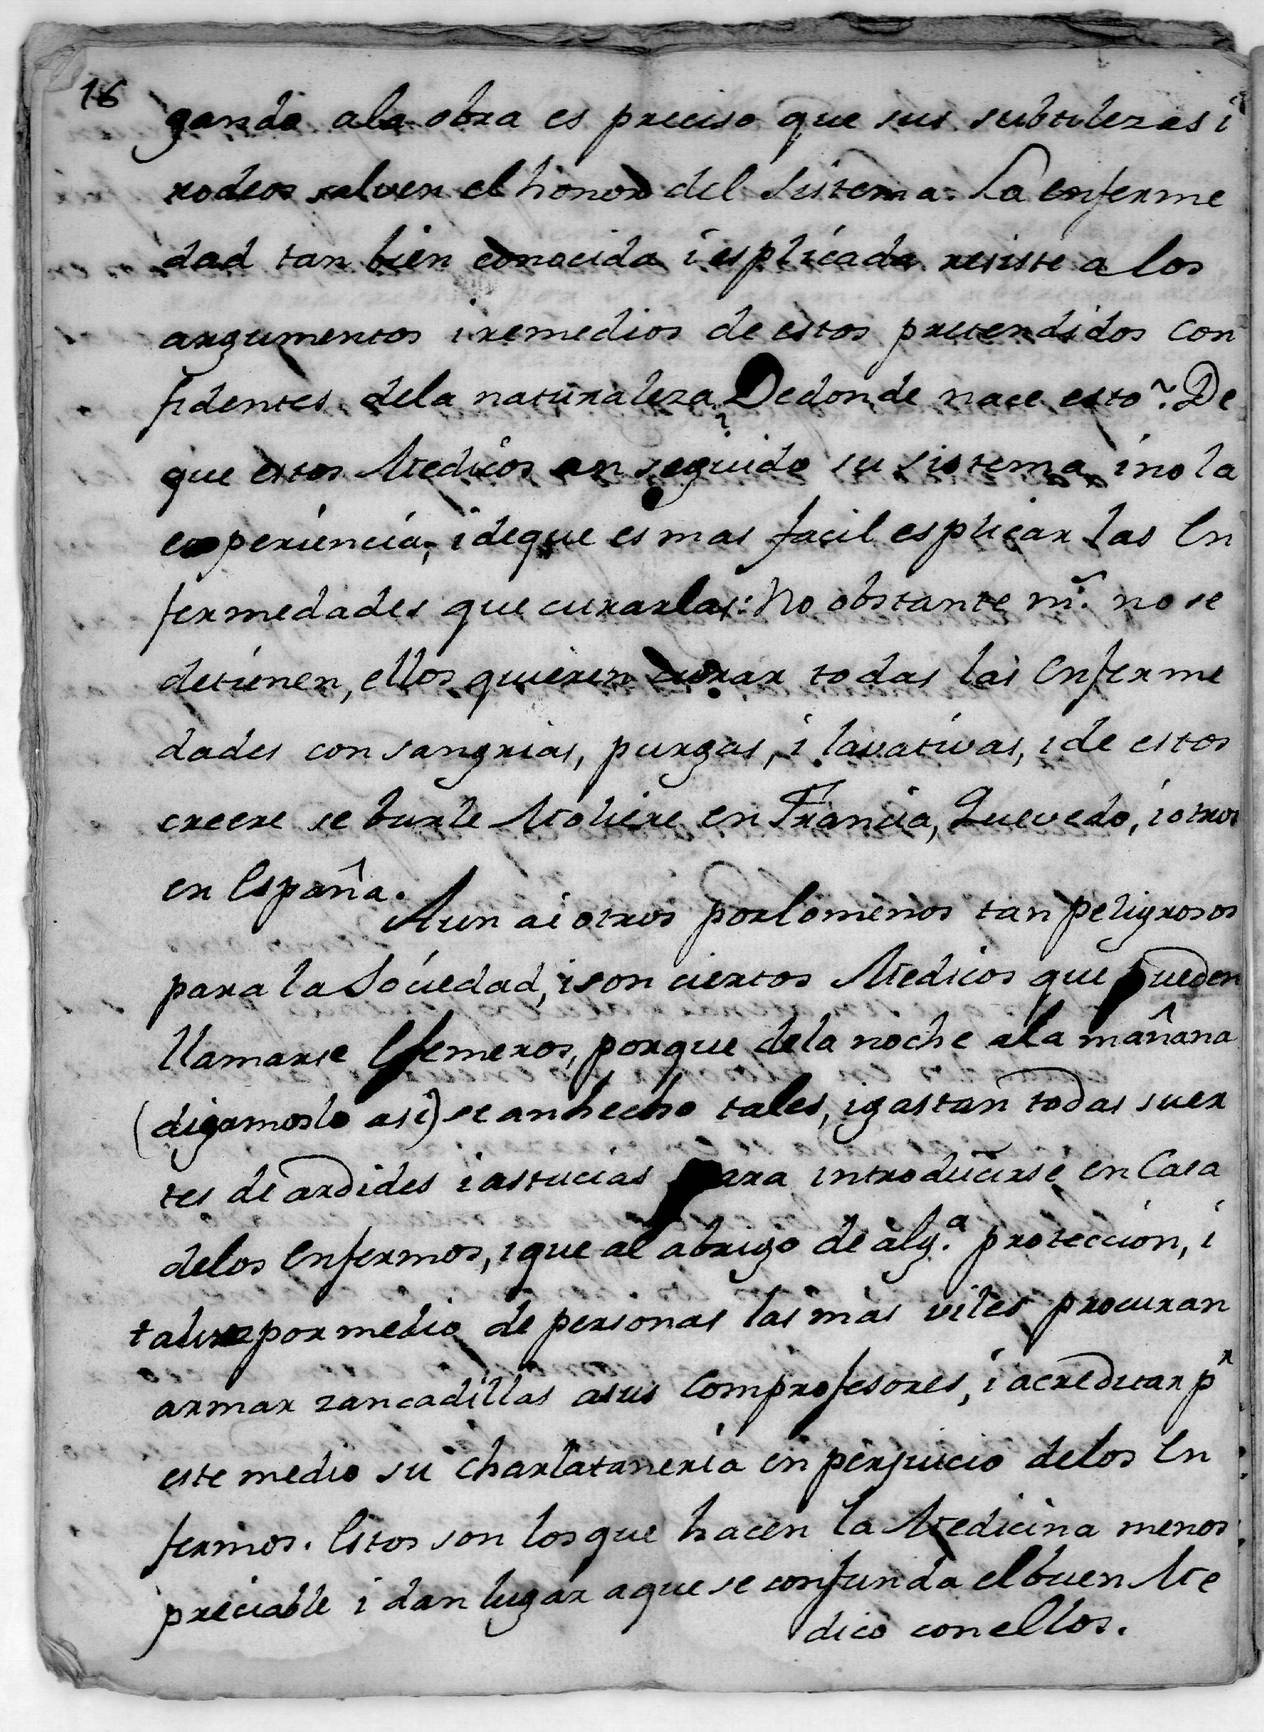 16
gando ala obra es preciso que sus subtilezas i
rodeos salven el honor del sistema. La enferme
dad tan bien conocida i esplicada resiste a los
argumentos i remedios de estos pretendidos con
fidentes dela naturaleza. Dedonde nace esto? De
que estos Medicos an seguido su sistema, i no la
experiencia, i deque es mas facil esplicar las En
fermedades que curarlas: No obstante no se
detienen, ellos quieren curar todas las Enferme
dades con sangrias, purgas, i lavativas, i de estos
creere se burle Moliere en Francia, Quevedo, i otros
en España.
Aun ai otros porlomenos tan peligrosos
para la Sociedad, i son ciertos Medicos que pueden
llamarse Efemeros, porque dela noche ala mañana
(digamoslo asi) se an hecho tales, i gastan todas suer
tes de ardides i astucias para introducirse en Casa
delos Enfermos, i que al abrigo de alg.ª proteccion, i
talvez por medio de personas las mas viles procuran
armar zancadillas asus Comprofesores, i acreditar pr
este medio su charlataneria en perjuicio delos En
fermos. Estos son losque hacen la Medicina menos
preciable i dan lugar aque se confunda el buen Me
dico con ellos.